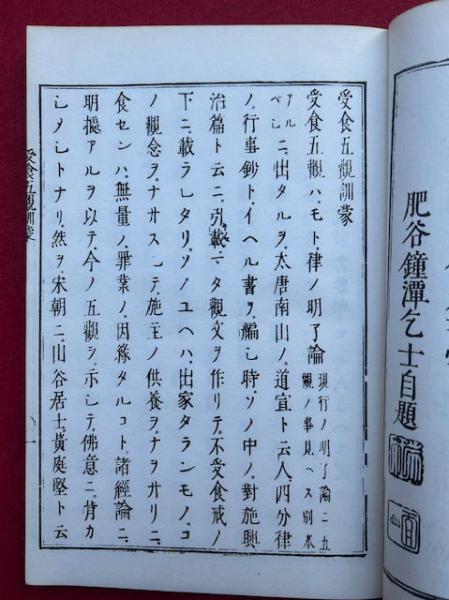 肥谷鐘潭乞士自題
受食五觀訓蒙
受食五觀ハ。モト律ノ明了論
現行ノ明了論ニ五
觀ノ事見ヘス別本
アルベシニ。出タルヲ。太唐南山ノ。道宣ト云人。四分律
ノ。行事鈔ト。イヘル書ヲ。編シ時。ソノ中ノ。對施興
治篇ト云ニ。引載タ文ヲ作リテ。不受食戒ノ
下ニ。載ラレタリ。ソノユヘハ。出家タランモノ。コ
ノ觀念ヲ。ナサスシテ。施主ノ供養ヲ。ナヲサリニ。
食センハ。無量ノ。罪業ノ。因緣タルコト。諸經論ニ。
明據アルヲ以テ。今ノ五觀ヲ。示シテ。佛意ニ。背カ
シメントナリ。然ヲ。宋朝ニ。山谷居士黃庭堅ト云
受食五觀訓蒙
一